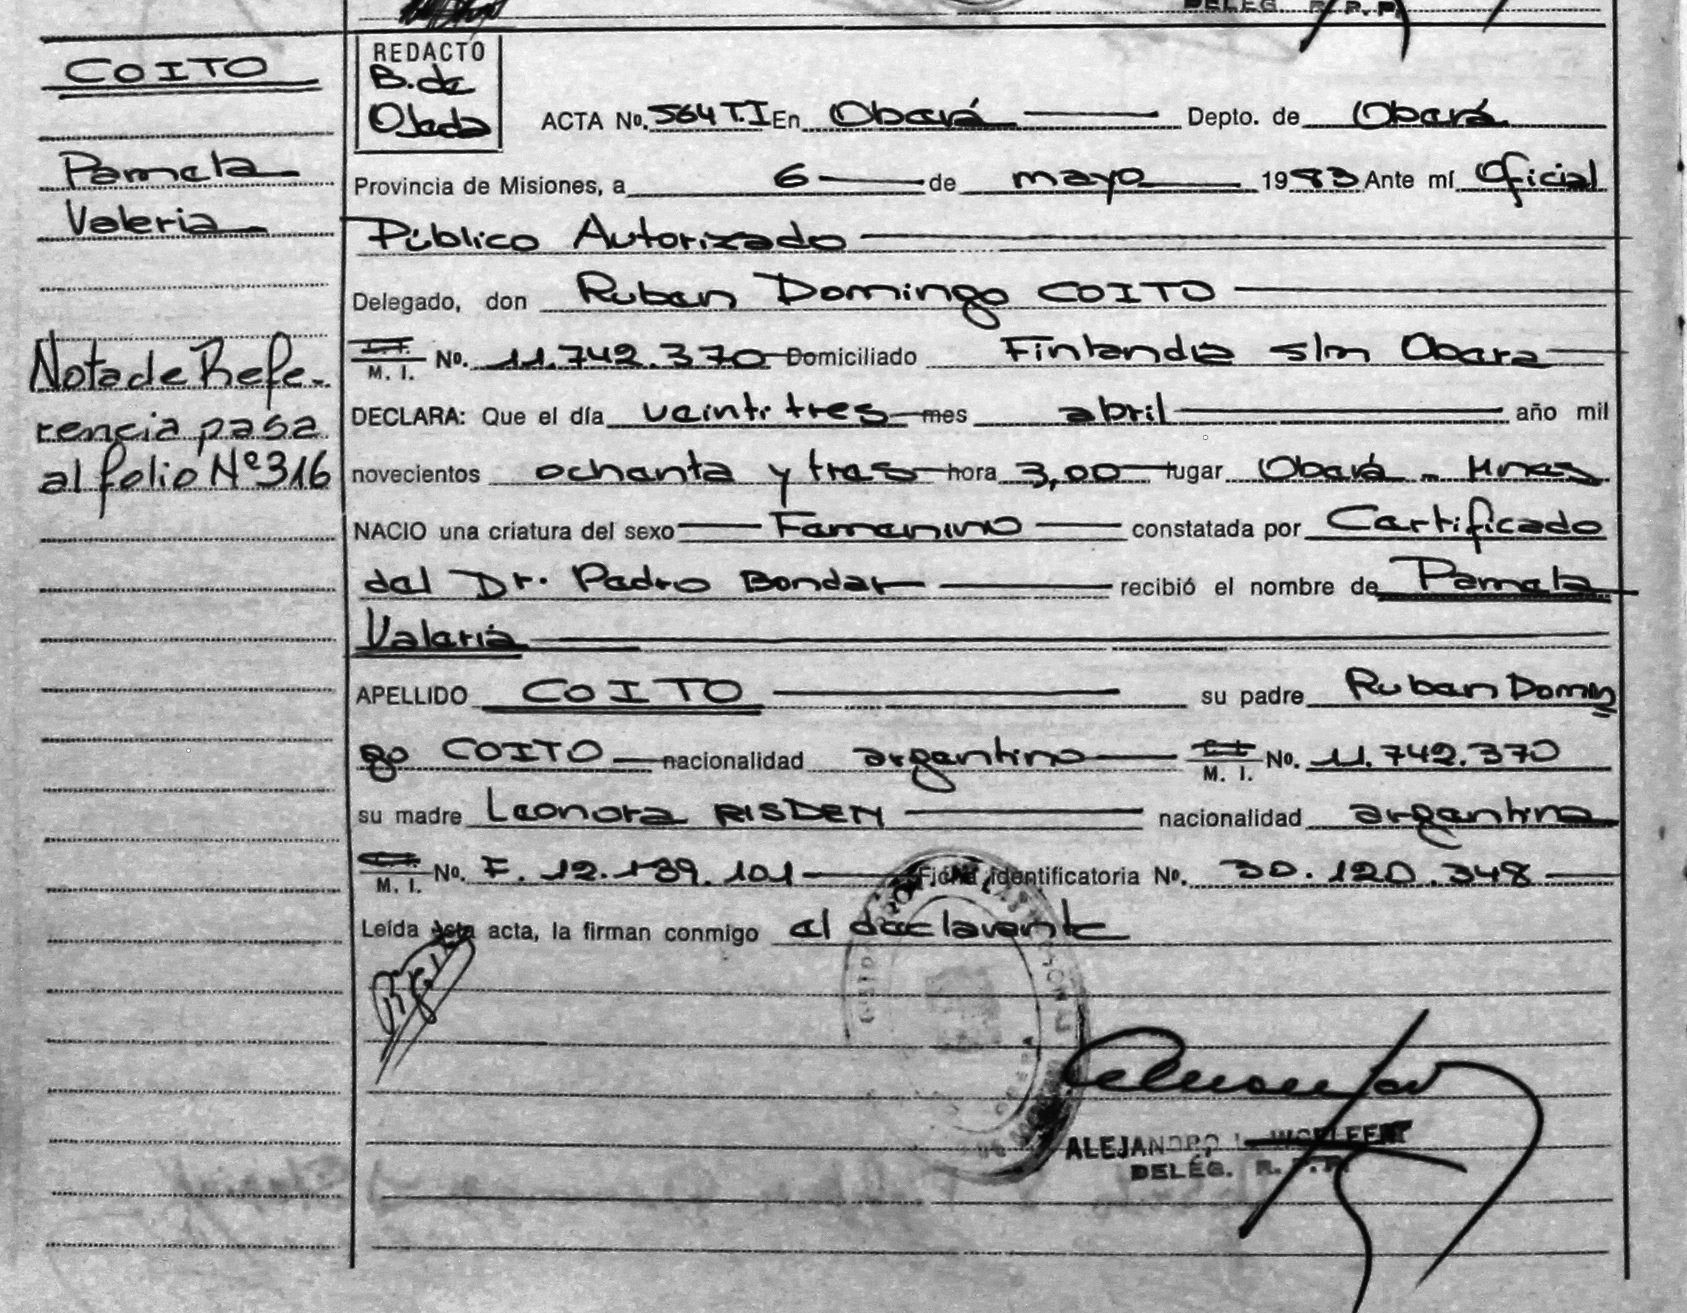 DELEG. R. P. P.
COITO
Pamela
Valeria
Nota de Refe-
rencia pasa
al folio Nº 316
REDACTÓ
B. de
Ojeda
ACTA No. 564 T.I En Oberá Depto. de Oberá
Provincia de Misiones, a 6 de mayo 1983 Ante mí Oficial
Público Autorizado
Delegado, don Ruben Domingo COITO
M. I. No. 11.742.370 Domiciliado Finlandia s/n Oberá
DECLARA: Que el día veintitres mes abril año mil
novecientos ochenta y tres hora 3,00 lugar Oberá - Mnes
NACIO una criatura del sexo Femenino constatada por Certificado
del Dr. Pedro Bondar recibió el nombre de Pamela
Valeria
APELLIDO COITO su padre Ruben Domin
go COITO nacionalidad argentino M. I. No. 11.742.370
su madre Leonora RISDEN nacionalidad argentina
M. I. No. F. 12.139.101 Ficha identificatoria No. 30.120.348
Leída esta acta, la firman conmigo el declarante
ALEJANDRO
DELEG. R. P. P.